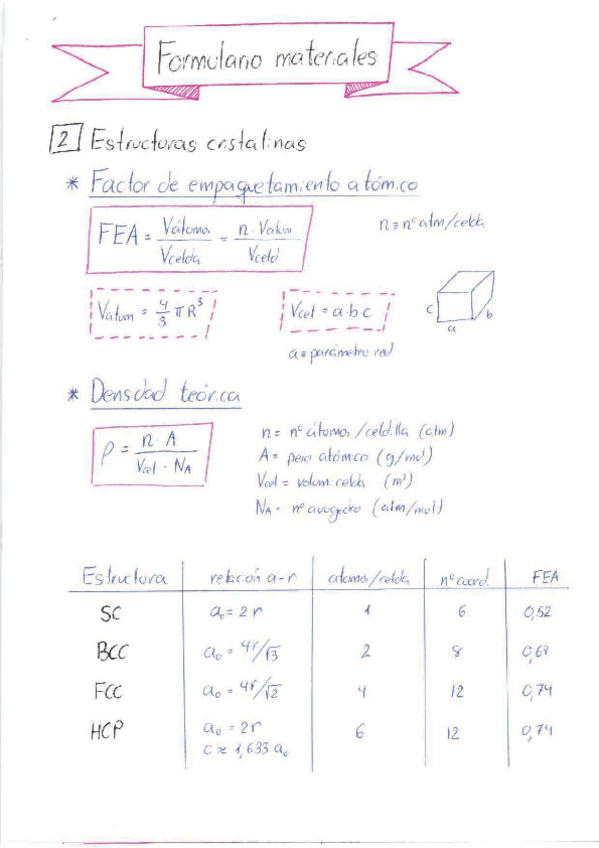 Formulario materiales
2 Estructuras cristalinas
* Factor de empaquetamiento atómico
FEA = Vátomos / Vcelda = n · Vatom / Vceld.
n ≡ nº atm/celda
Vatom = 4/3 π R³
Vcel = a·b·c
c
a
b
a ≡ parámetro red
* Densidad teórica
ρ = n · A / Vcel · NA
n = nº átomos/celdilla (atm)
A = peso atómico (g/mol)
Vcel = volum. celda (m³)
NA = nº avogadro (atm/mol)
Estructura relación a-r atomos/celda nº coord. FEA
SC a₀ = 2r 1 6 0,52
BCC a₀ = 4r/√3 2 8 0,68
FCC a₀ = 4r/√2 4 12 0,74
HCP a₀ = 2r 6 12 0,74
c ≈ 1,633 a₀